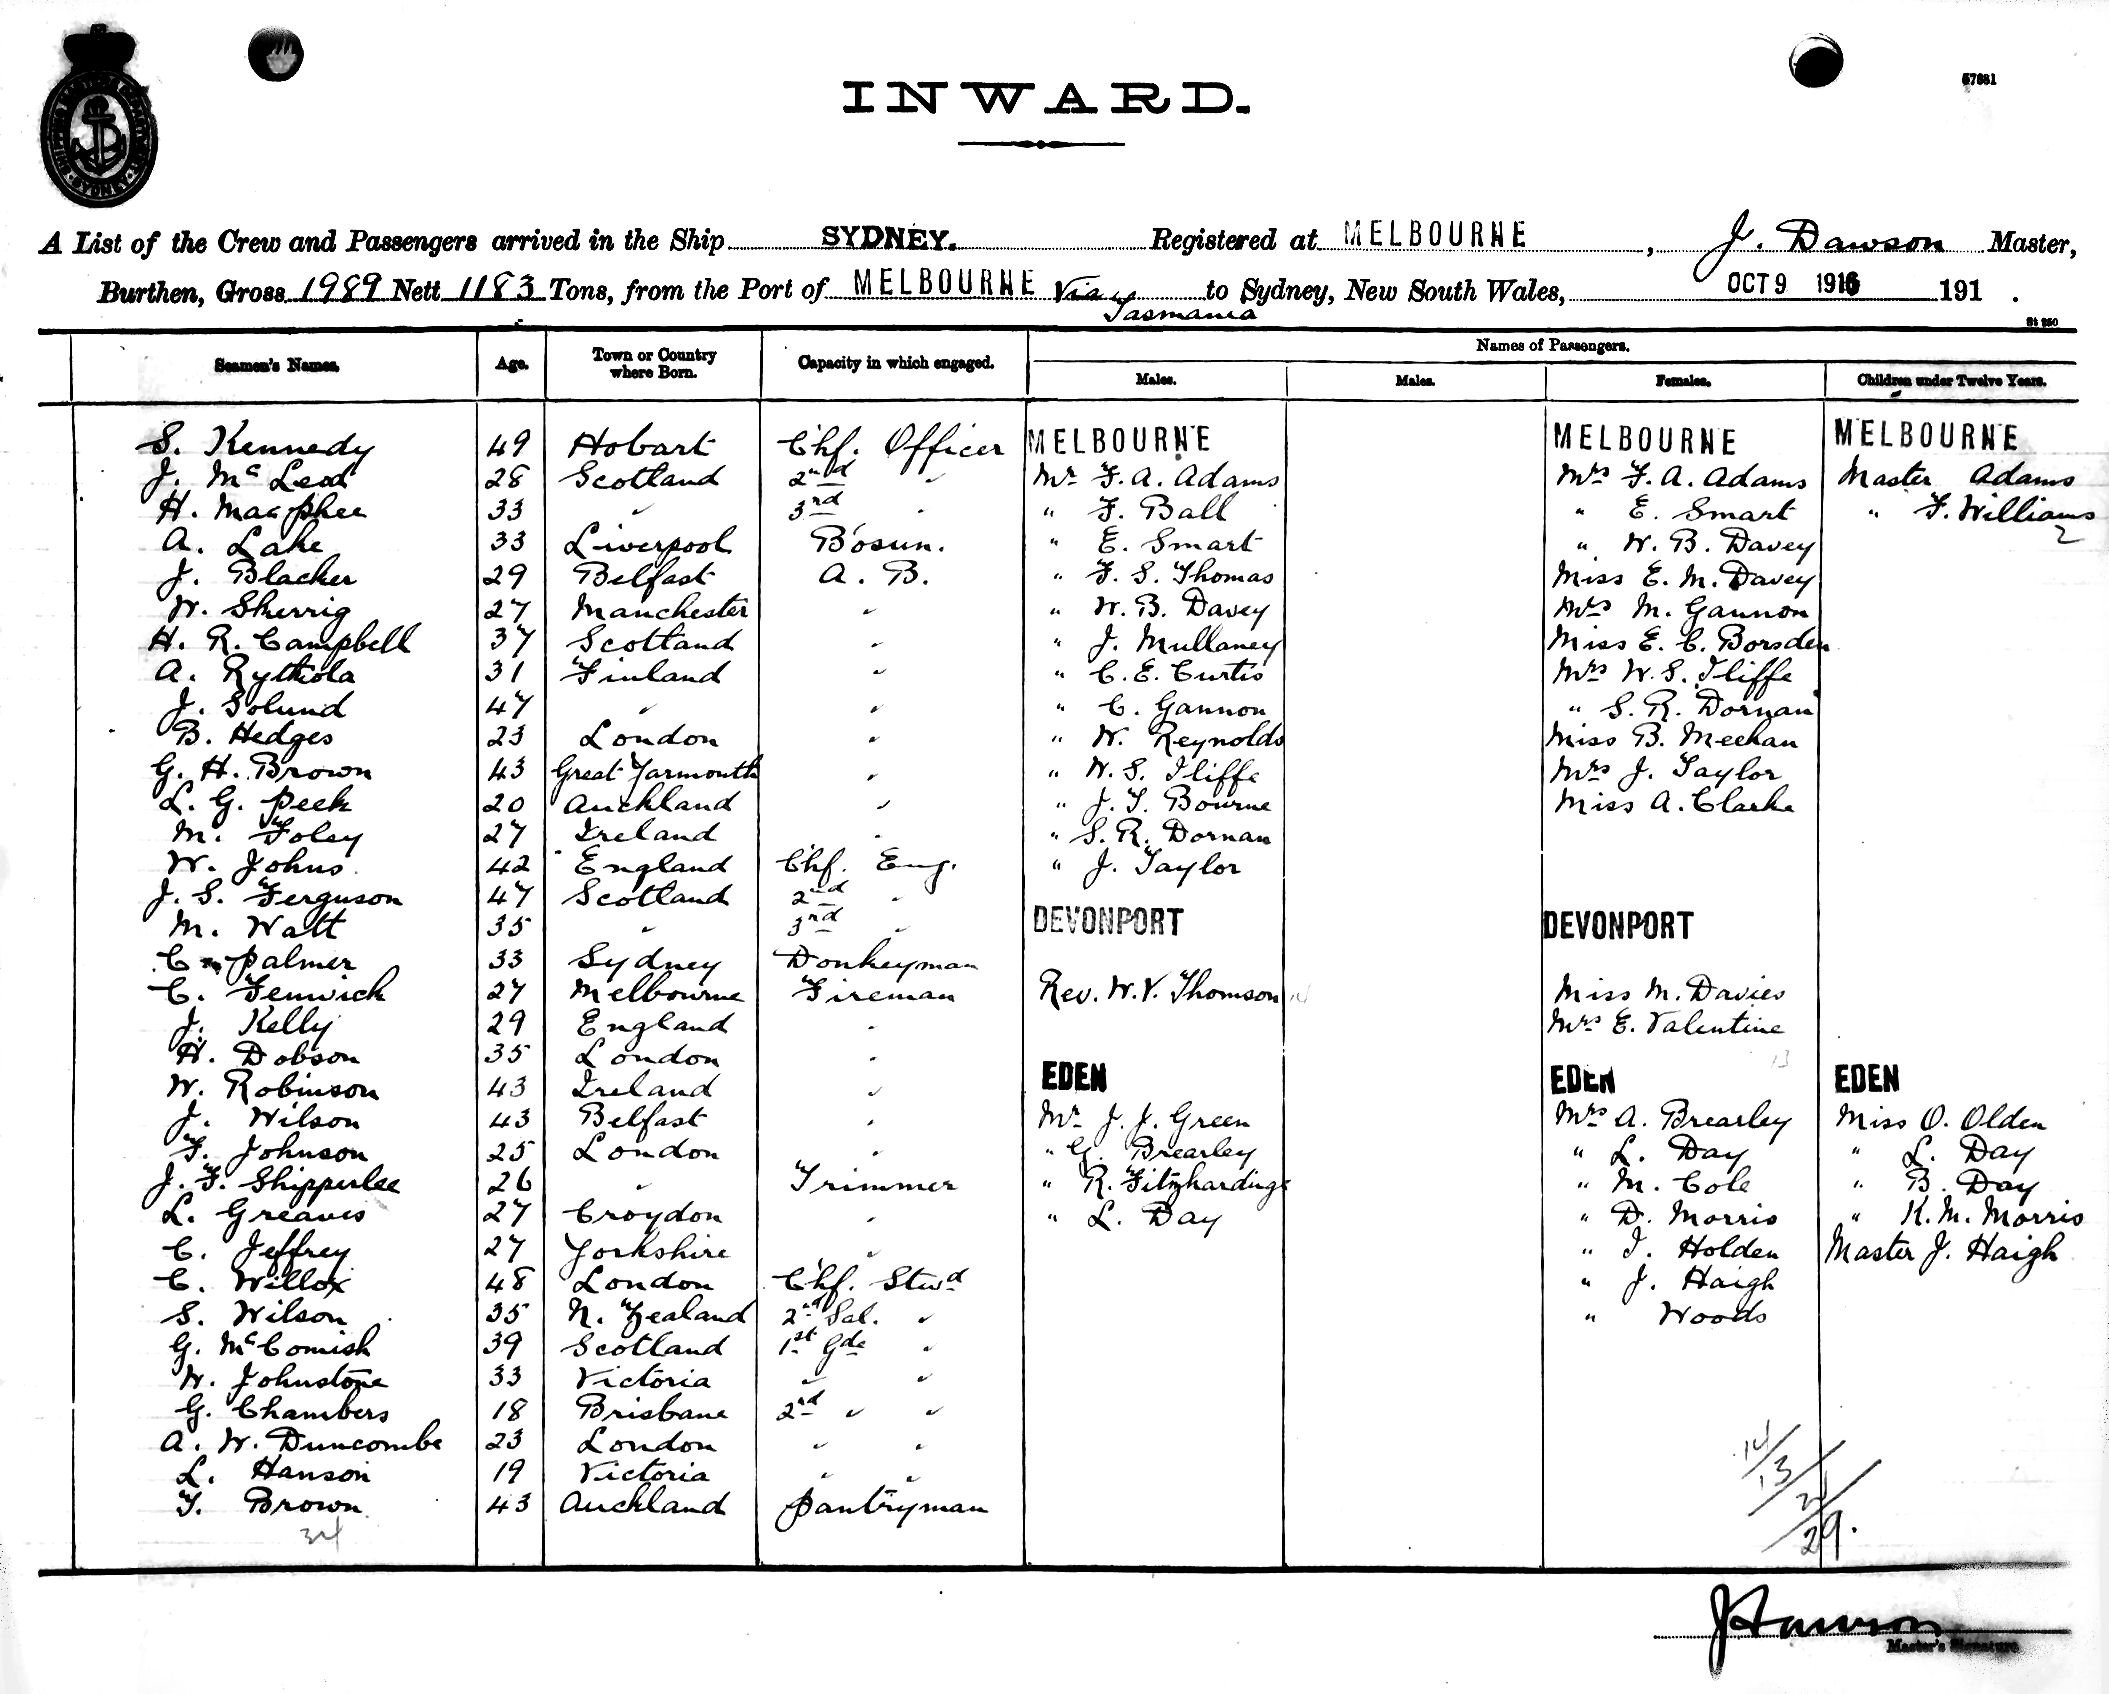 57881
INWARD.
A List of the Crew and Passengers arrived in the Ship SYDNEY. Registered at MELBOURNE, J. Dawson Master,
Burthen, Gross 1989 Nett 1183 Tons, from the Port of MELBOURNE Via Tasmania to Sydney, New South Wales, OCT 9 1916 191 .
St 250
Seamen's Names. Age. Town or Country where Born. Capacity in which engaged. Names of Passengers.
Males. Males. Females. Children under Twelve Years.
S. Kennedy 49 Hobart Chf. Officer MELBOURNE MELBOURNE MELBOURNE
J. McLeod 28 Scotland 2nd " Mr F. A. Adams Mrs F. A. Adams Master Adams
H. Macphee 33 " 3rd " " F. Ball " E. Smart " F. Williams
2
A. Lake 33 Liverpool Bosun. " E. Smart " W. B. Davey
J. Blacker 29 Belfast A. B. " F. S. Thomas Miss E. M. Davey
W. Sherrig 27 Manchester " " W. B. Davey Mrs M. Gannon
H. R. Campbell 37 Scotland " " J. Mullaney Miss E. C. Borsden
A. Rythiola 31 Finland " " C. E. Curtis Mrs W. S. Iliffe
J. Solund 47 " " " C. Gannon " S. R. Dornan
B. Hedges 23 London " " W. Reynolds Miss B. Meehan
G. H. Brown 43 Great Yarmouth " " W. S. Iliffe Mrs J. Taylor
L. G. Peek 20 Auckland " " J. T. Bourne Miss A. Clarke
M. Foley 27 Ireland " " S. R. Dornan
W. Johns 42 England Chf. Eng. " J. Taylor
J. S. Ferguson 47 Scotland 2nd "
M. Watt 35 " 3rd " DEVONPORT DEVONPORT
C. Palmer 33 Sydney Donkeyman
C. Fenwick 27 Melbourne Fireman Rev. W. V. Thomson 14 Miss M. Davies
J. Kelly 29 England " Mrs E. Valentine
H. Dobson 35 London " 13
W. Robinson 43 Ireland " EDEN EDEN EDEN
J. Wilson 43 Belfast " Mr J. J. Green Mrs A. Brearley Miss O. Olden
F. Johnson 25 London " " G. Brearley " L. Day " L. Day
J. F. Shipperlee 26 " Trimmer " R. Fitzhardinge " M. Cole " B. Day
L. Greaves 27 Croydon " " L. Day " D. Morris " K. M. Morris
C. Jeffrey 27 Yorkshire " " I. Holden Master J. Haigh
C. Willox 48 London Chf. Stwd " J. Haigh
S. Wilson 35 N. Zealand 2nd Sal. " " Woods
G. McComish 39 Scotland 1st Gde "
W. Johnstone 33 Victoria " "
G. Chambers 18 Brisbane 2nd " "
A. W. Duncombe 23 London " "
L. Hanson 19 Victoria " "
T. Brown 43 Auckland Pantryman
34
14/
13/
2/
29.
J Dawson
Master's Signature